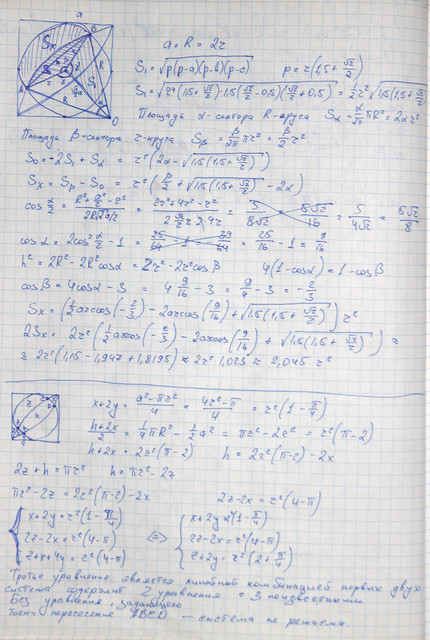 a = R = 2r
S₁ = √(p(p-a)(p-b)(p-c)) p = r(1,5 + √2/2)
S₁ = √(r⁴(1,5+√2/2)·1,5(√2/2-0,5)(√2/2+0,5)) = ½r²√(1,5(1,5+√2/2))
Площадь α-сектора R-круга Sα = α/2π πR² = 2αr²
Площадь β-сектора r-круга Sβ = β/2π πr² = β/2 r²
S₀ = -2S₁ + Sα = r²(2α - √(1,5(1,5+√2/2)))
Sx = Sβ - S₀ = r²(β/2 + √(1,5(1,5+√2/2)) - 2α)
cos α/2 = 5/(4√2) = 5√2/8
cosα = 2cos² α/2 - 1 = 25/16 - 1 = 9/16
h² = 2R² - 2R²cosα = 2r² - 2r²cosβ 4(1-cosα) = 1-cosβ
cosβ = 4cosα - 3 = 4 9/16 - 3 = 9/4 - 3 =
Sx = (½arccos(-2/3) - 2arccos(9/16) + √(1,5(1,5+√2/2))) r²
2Sx = 2r²(½arccos(-2/3) - 2arccos(9/16) + √(1,5(1,5+√2/2))) ≈
≈ 2r²(1,15 - 1,947 + 1,8195) ≈ 2r² 1,023 ≈ 2,045 r²
x+2y = = r²(1-π/4)
(h+2x)/2 = ¼πR² - ½a² = πr² - 2r² = r²(π-2)
h+2x = 2r²(π-2) h = 2r²(π-2) - 2x
2z + h = πr² h = πr² - 2z
πr² - 2z = 2r²(π-2) - 2x 2z-2x = r²(4-π)
x+2y = r²(1-π/4) x+2y = r²(1-π/4)
2z-2x = r²(4-π) <=> 2z-2x = r²(4-π)
z+x+4y = r²(4-π) z+2y =
Третье уравнение является линейной комбинацией первых двух
система содержит 2 уравнения с 3 неизвестными
Без уравнения, задающего
точки пересечения ABCD — система не решаема.